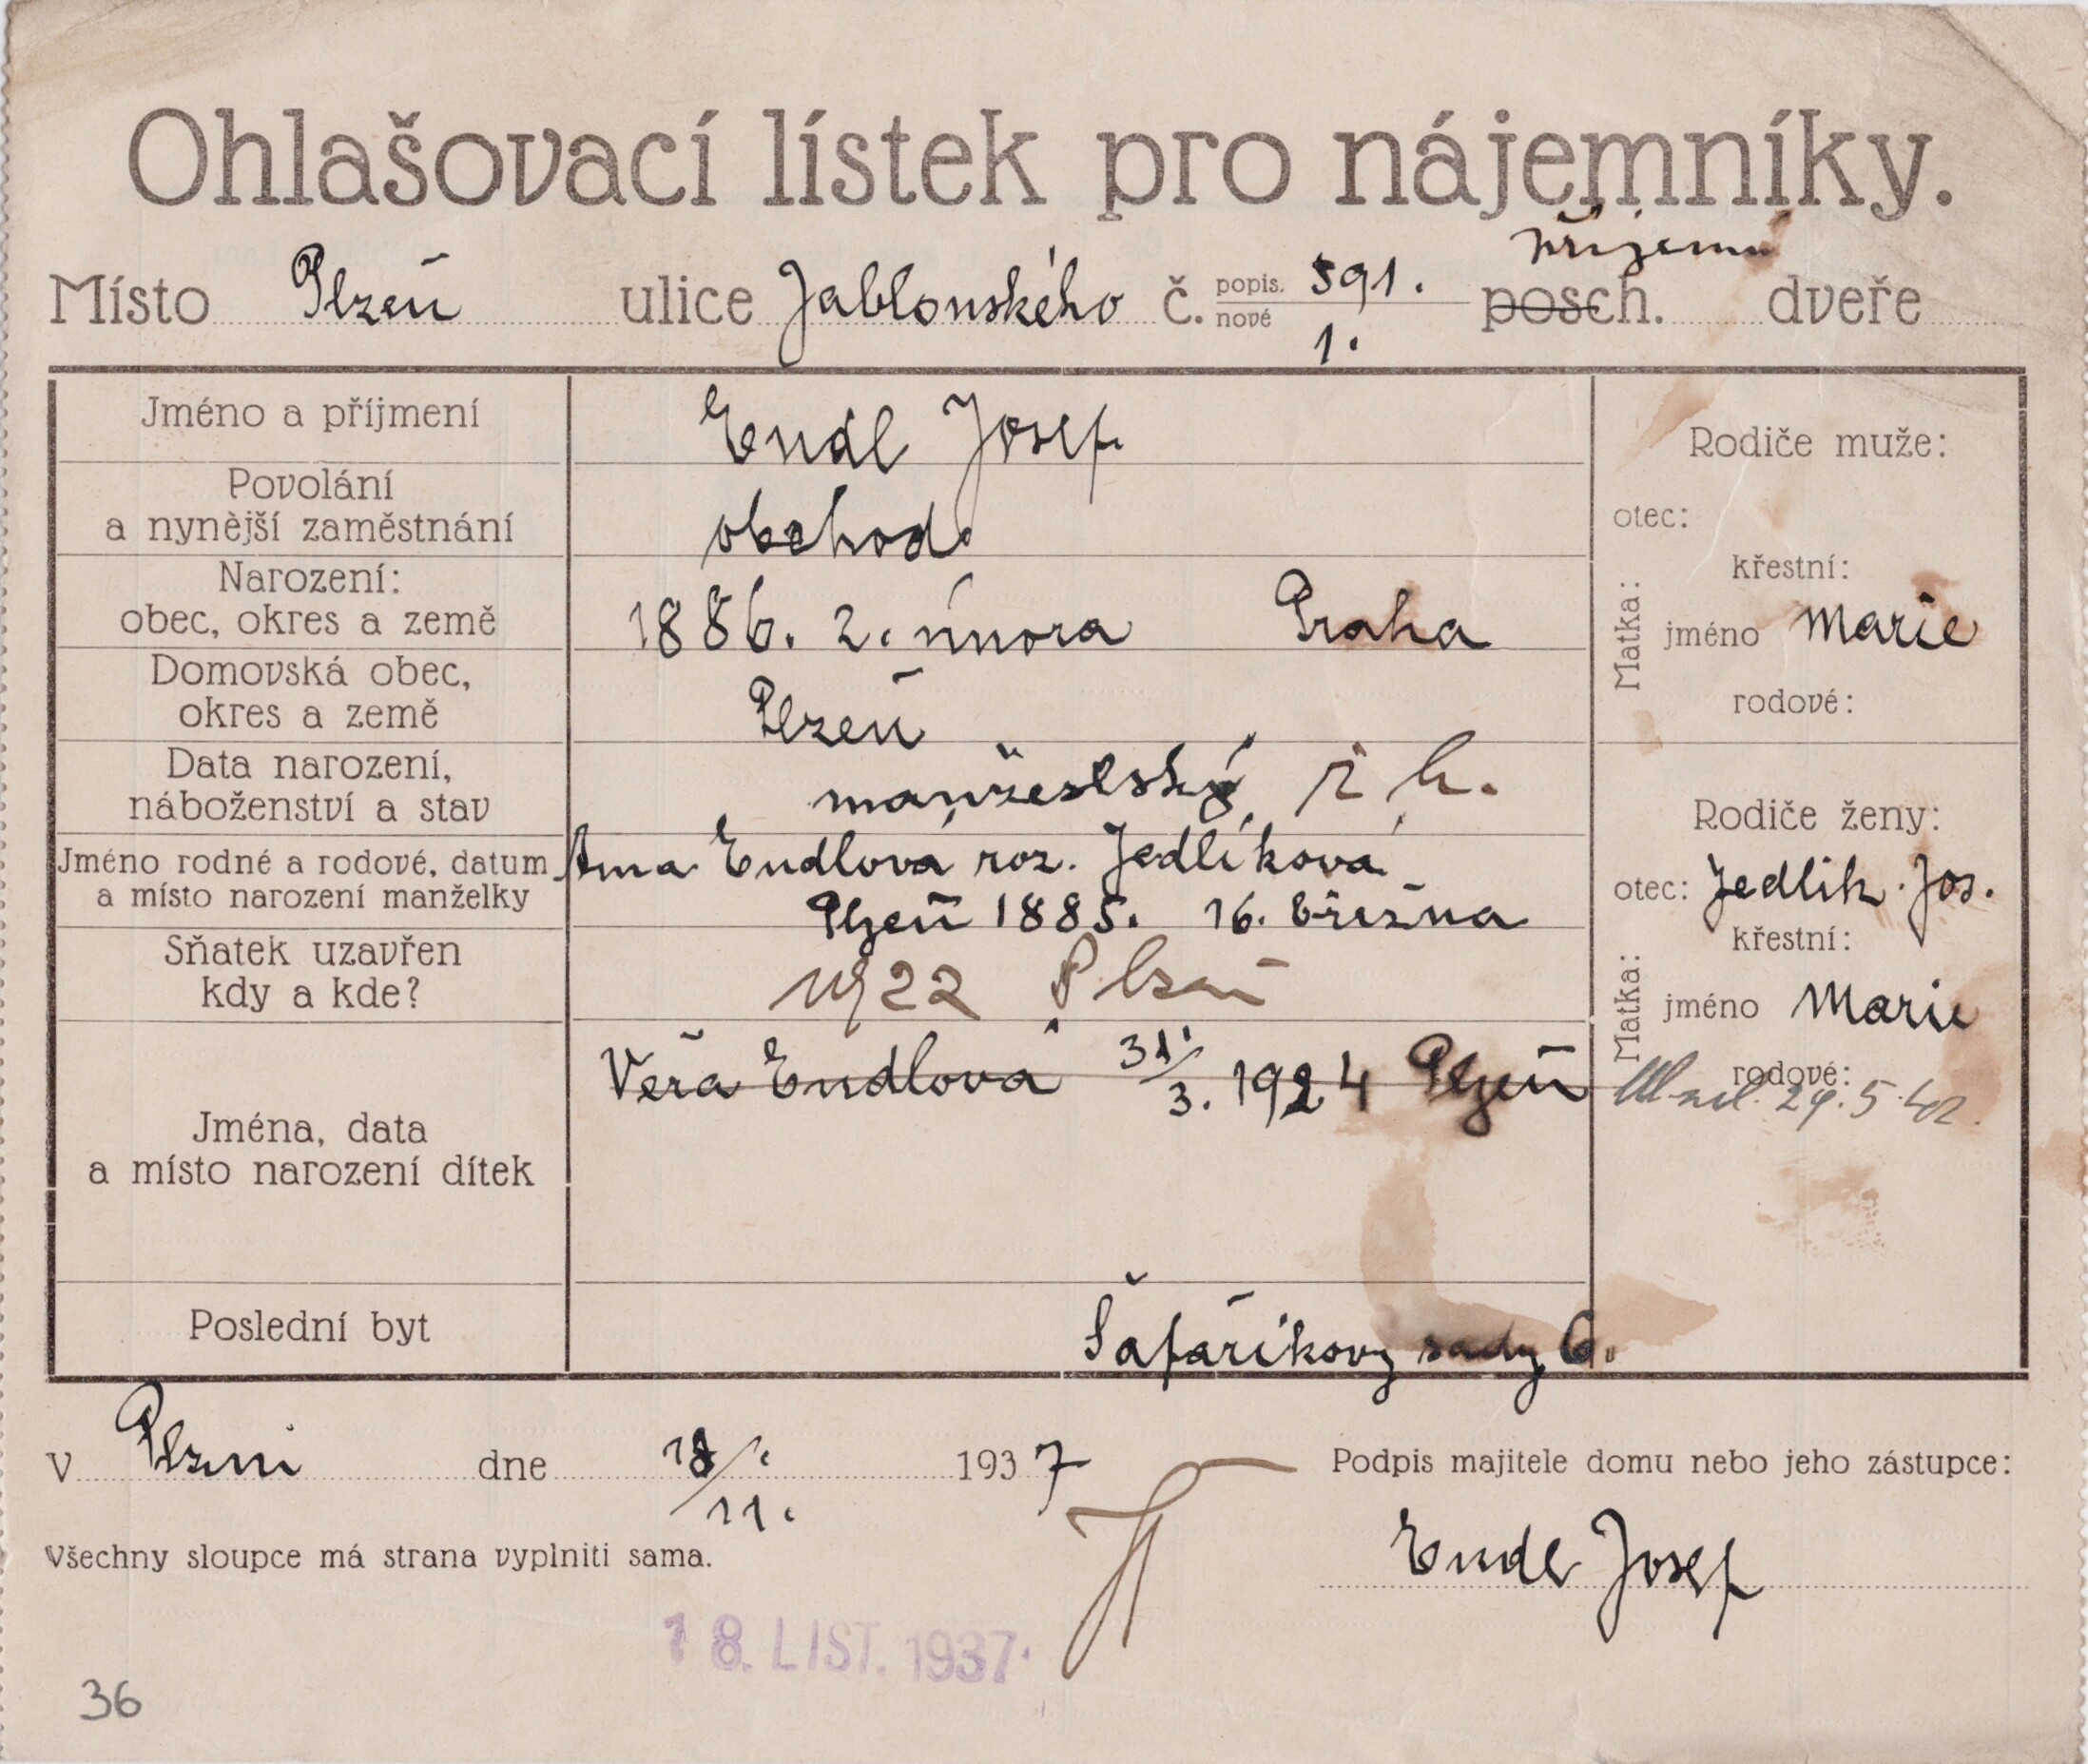 Ohlašovací lístek pro nájemníky.
přízemí
Místo Plzeň ulice Jablonského č. popis. 591. posch. dveře
nové 1.
Jméno a příjmení Endl Josef
Rodiče muže:
Povolání
a nynější zaměstnání obchod.
otec:
Narození:
obec, okres a země 1886. 2. února Praha
Matka:
křestní:
jméno Marie
rodové:
Domovská obec,
okres a země Plzeň
Data narození,
náboženství a stav manželský ř. k.
Rodiče ženy:
Jméno rodné a rodové, datum
a místo narození manželky
Anna Endlová roz. Jedlíková
Plzeň 1885. 16. března
otec: Jedlík Jos.
Sňatek uzavřen
kdy a kde? 1922 Plzeň
Matka:
křestní:
jméno Marie
rodové:
29.5.42.
Jména, data
a místo narození dítek
Věra Endlová 31./3. 1924 Plzeň
Poslední byt Šafaříkovy sady 6.
v Plzni dne 18./11. 1937
Podpis majitele domu nebo jeho zástupce:
Endl Josef
Všechny sloupce má strana vyplniti sama.
18. LIST. 1937
36